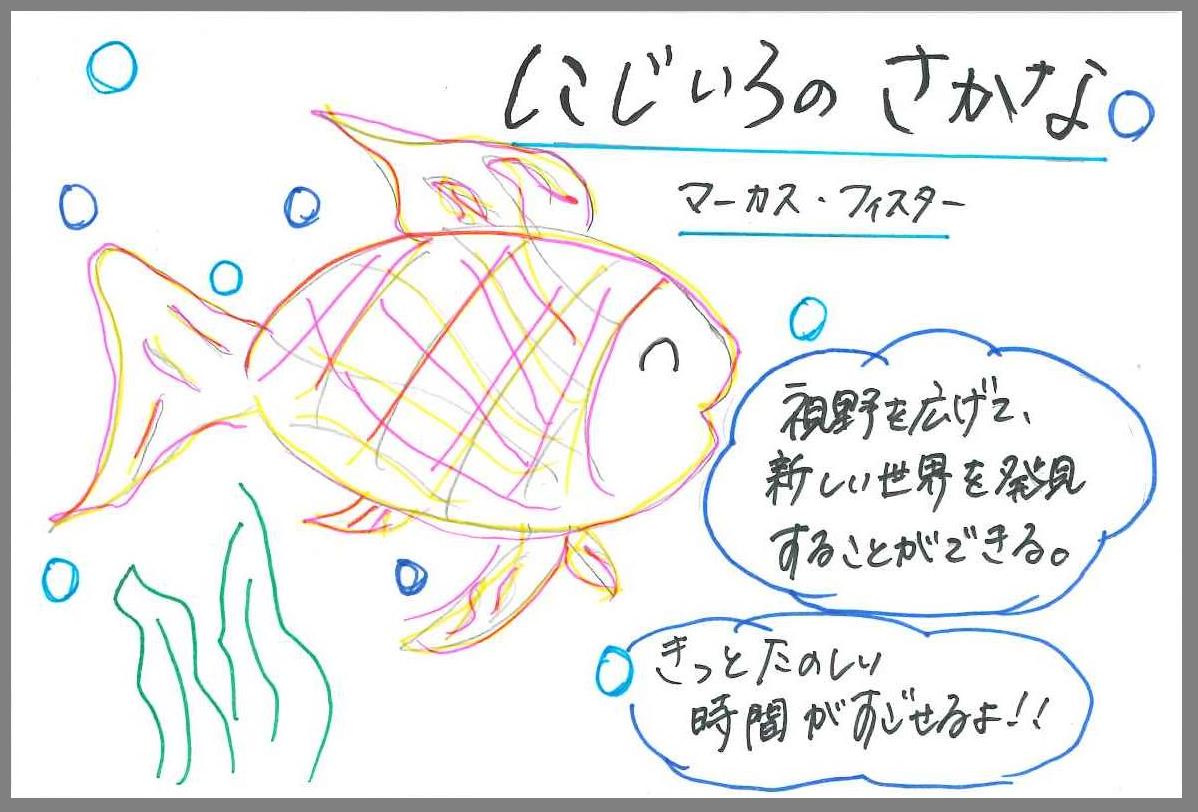 にじいろの さかな
マーカス・フィスター
視野を広げて、
新しい世界を発見
することができる。
きっとたのしい
時間がすごせるよ!!